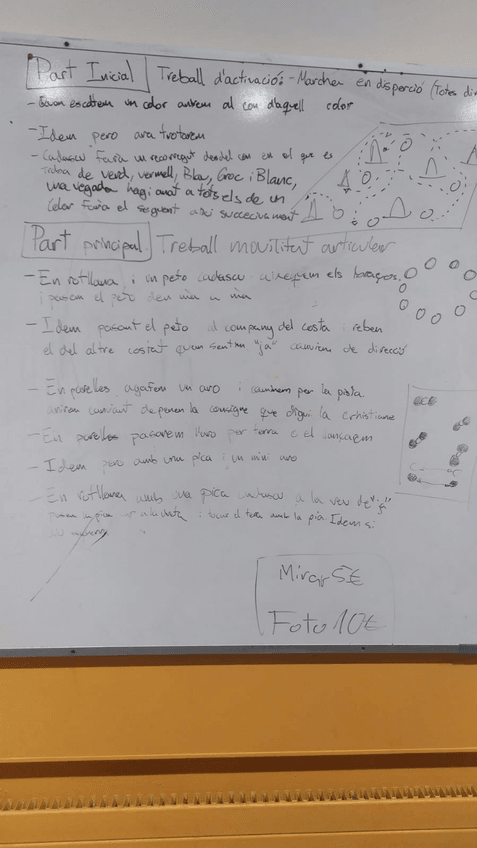 Part Inicial Treball d'activació: - Marchen en disperció (Totes
escoltem un color anirem al con d'aquell color
- Idem pero ara trotarem
- Cadascu farà un recorregut desdel con en el que es
troba de verd, vermell, Blau, Groc i Blanc,
una vegada hagi anat a tots els de un
color farà el seguent i aixi succecivament
Part principal Treball movilitat articular
- En rotllana i un peto cadascu els braços,
i pasem el peto de mà a mà
- Idem pasant el peto al company del costat i reben
el del altre costat quan sentim "ja" canviem de direcció
- En parelles agafem un aro i caminem per la pista
anirem canviant depenen la consigna que digui la Christiane
- En parelles pasarem l'aro per terra o el llançarem
- Idem pero amb una pica i un mini aro
- En rotllana amb una pica cadascu a la veu de "ja"
i tocar el terra amb la pica. Idem si
Mirar 5€
Foto 10€